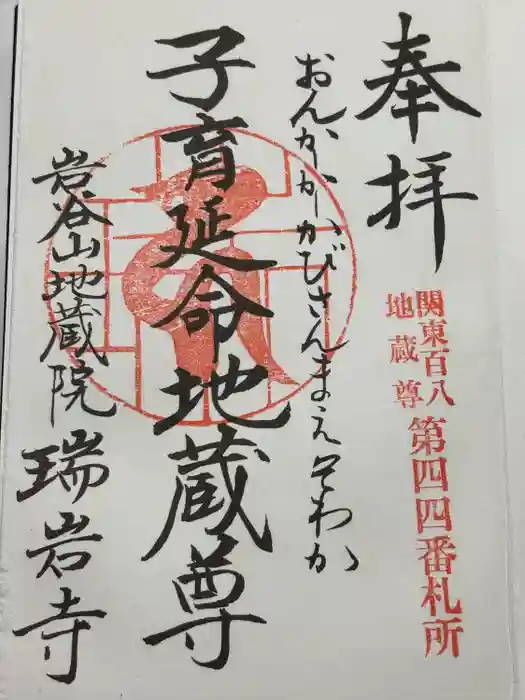 奉拝
関東百八
地蔵尊
第四四番札所
おんかかかびさんまえそわか
子育延命地蔵尊
岩谷山地蔵院
瑞岩寺